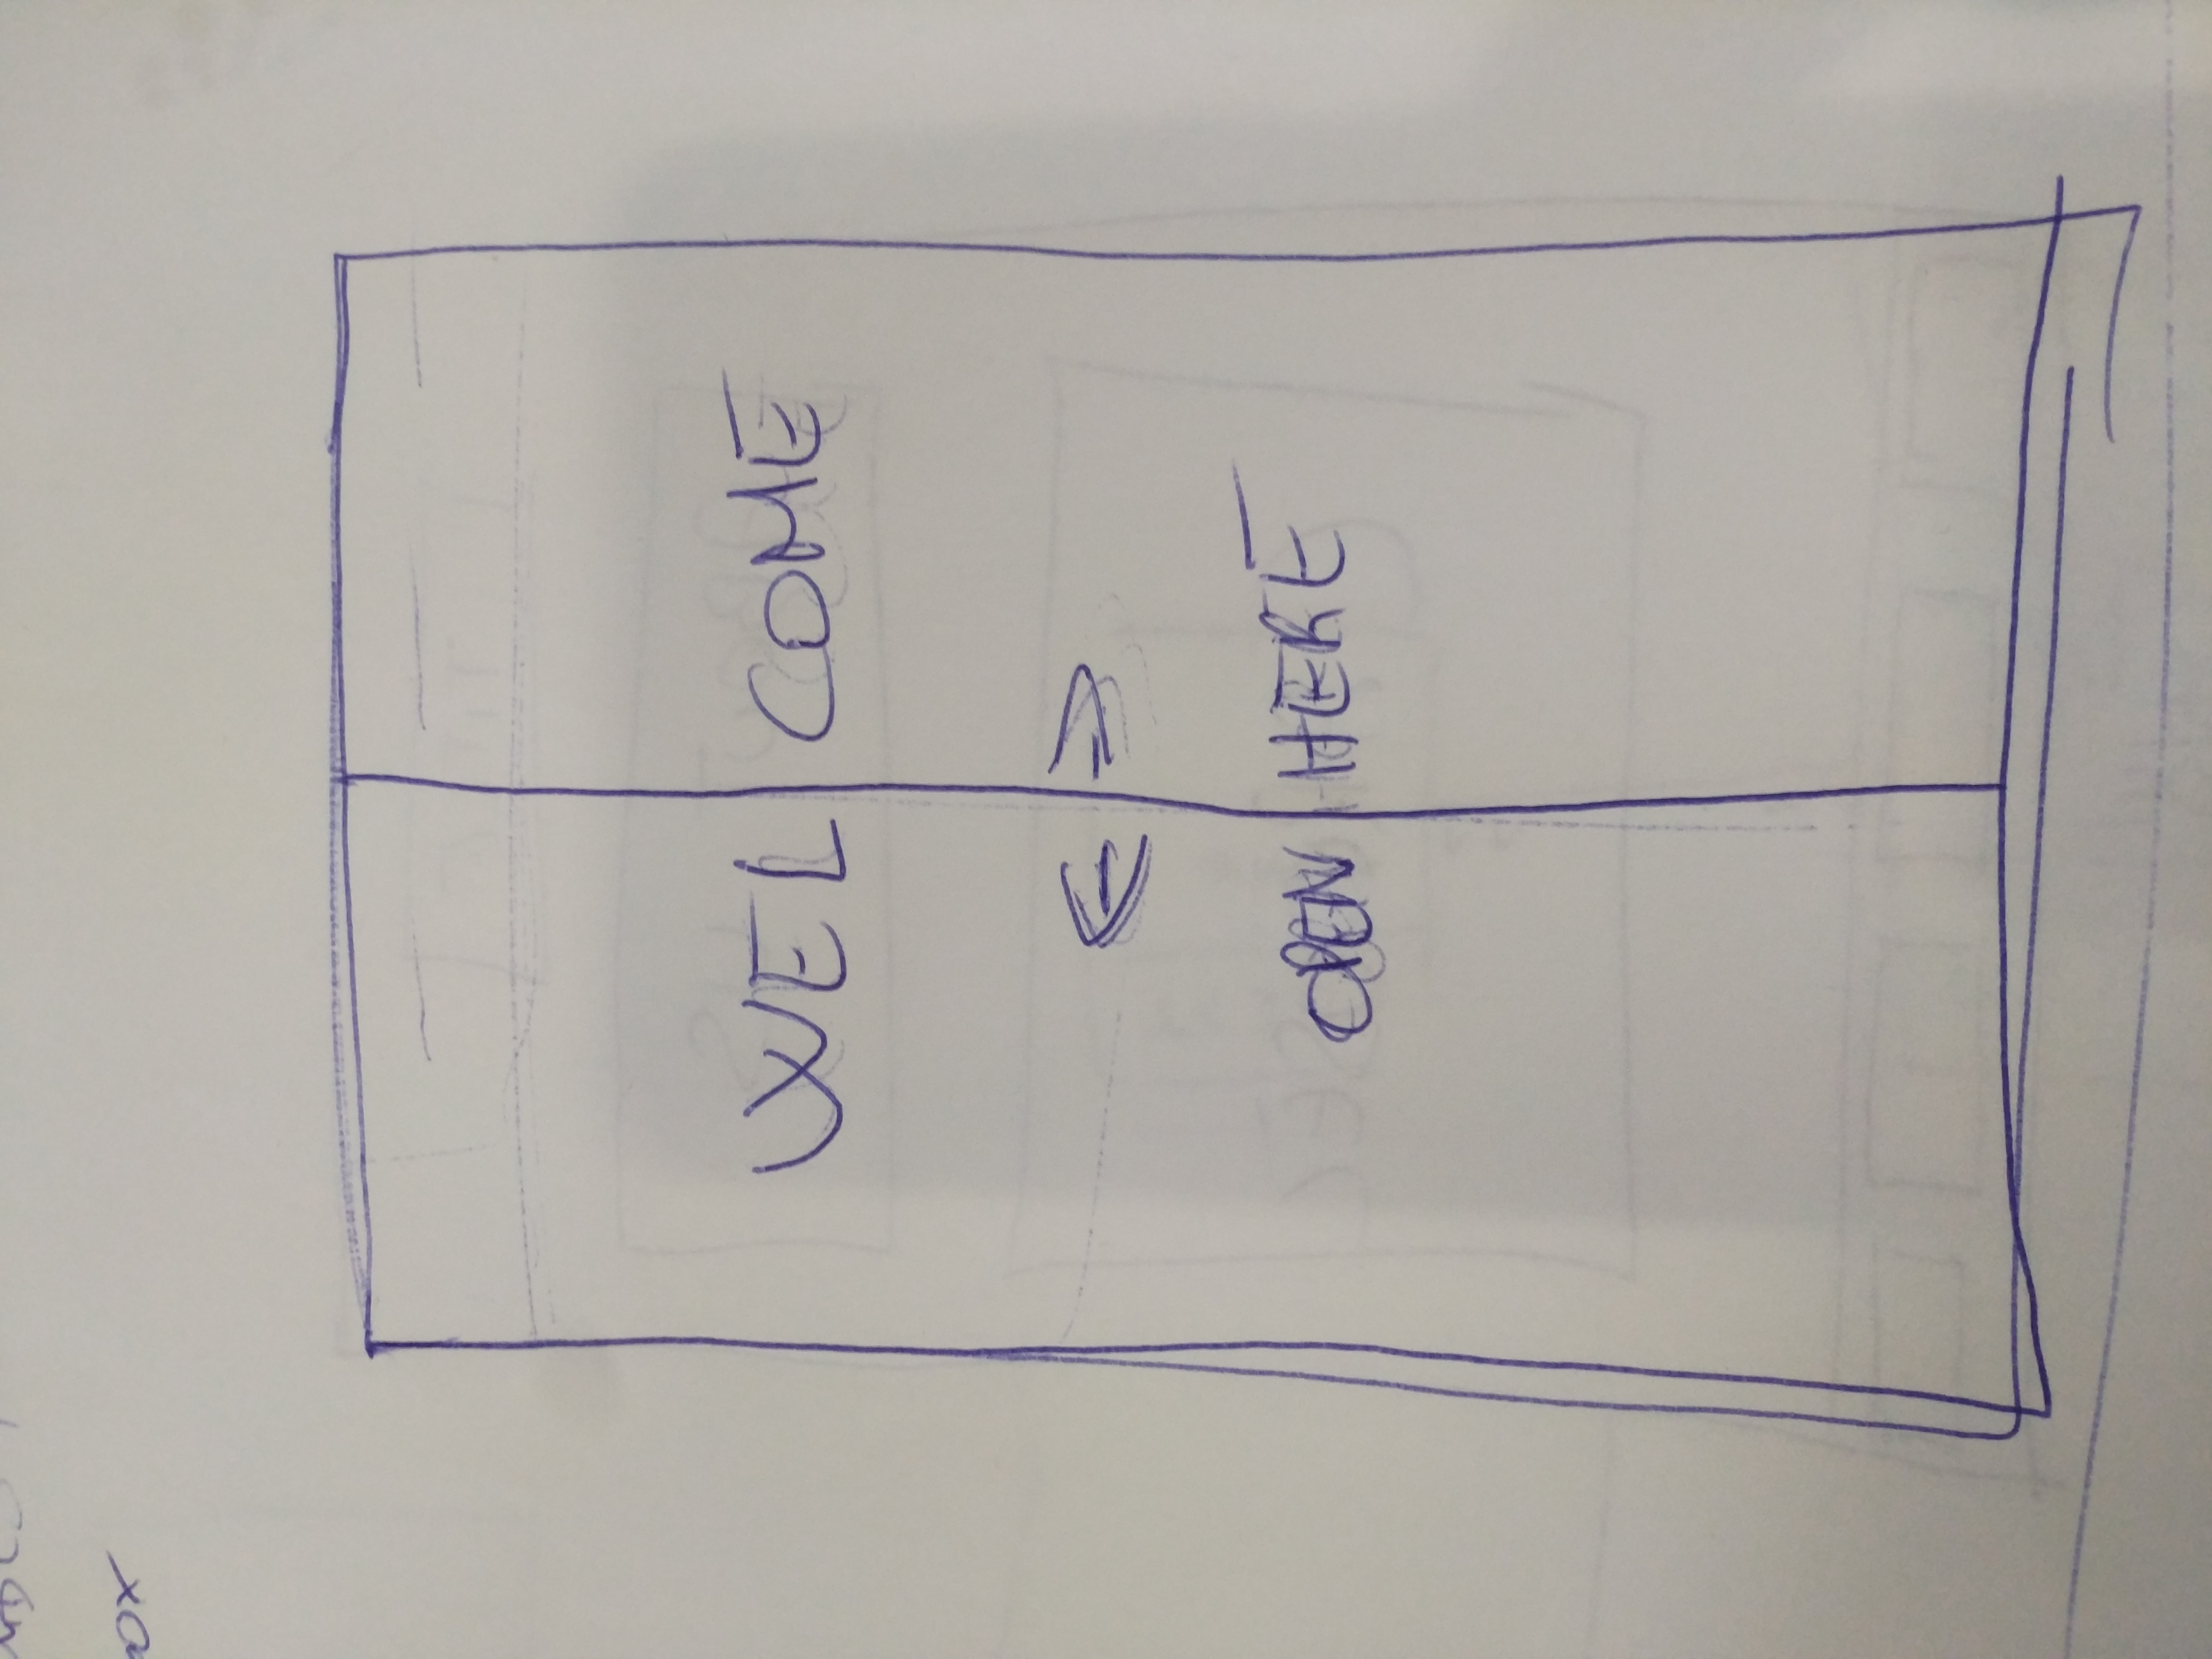 WEL COME
OPEN HERE